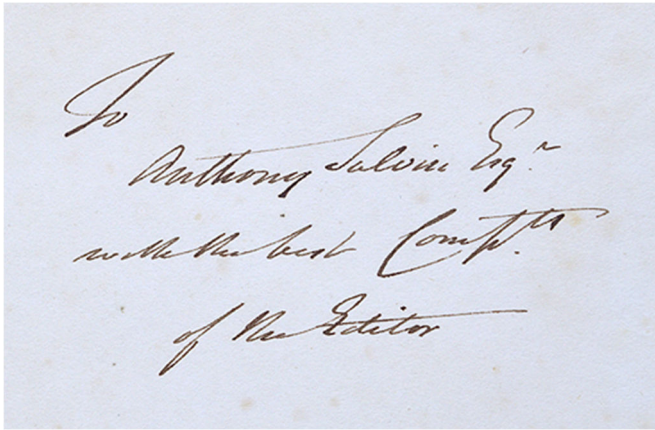 To
Anthony Salvin Esqr.
with the best Compts.
of the Editor